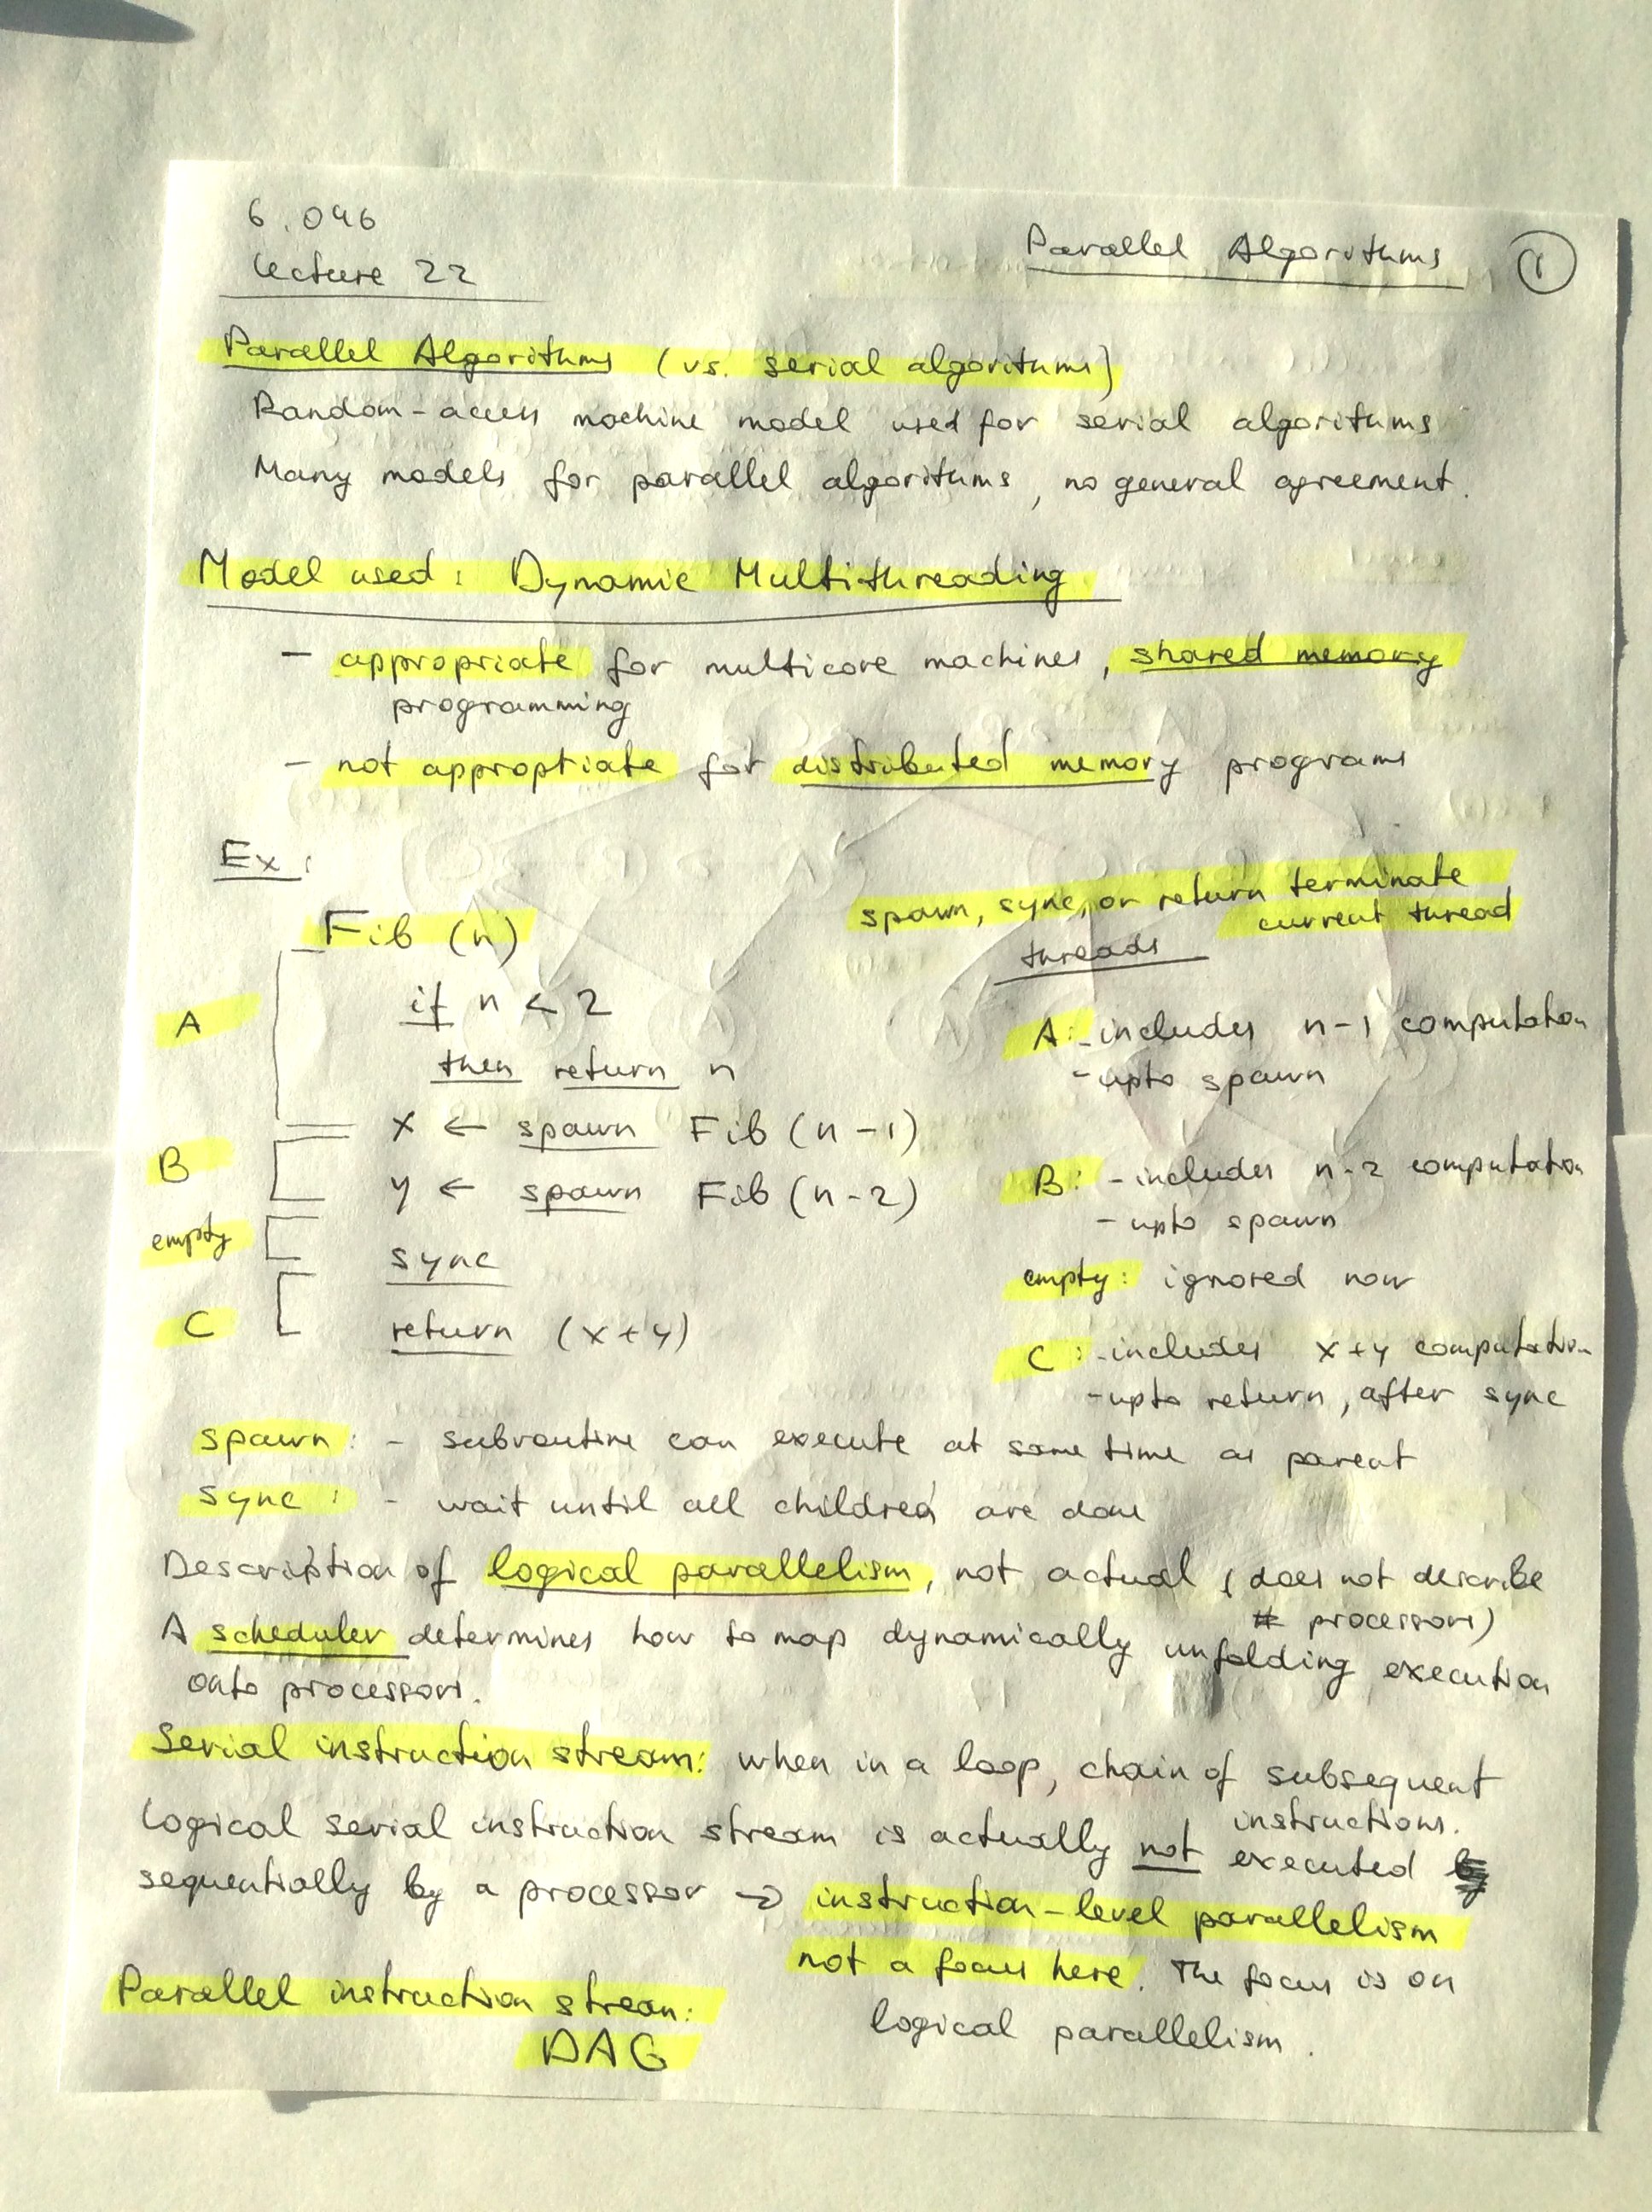 6.046
Lecture 22
Parallel Algorithms
1
Parallel Algorithms (vs. serial algorithms)
Random-access machine model used for serial algorithms
Many models for parallel algorithms, no general agreement.
Model used: Dynamic Multithreading
- appropriate for multicore machines, shared memory
programming
- not appropriate for distributed memory programs
Ex:
spawn, sync, or return terminate
current thread
Fib (n)
threads
A
if n < 2
A: - includes n-1 computation
then return n
- upto spawn
x ← spawn Fib (n-1)
B
B: - includes n-2 computation
y ← spawn Fib (n-2)
- upto spawn
empty
sync
empty: ignored now
C
return (x+y)
C: - includes x+y computation
- upto return, after sync
spawn: - subroutine can execute at same time as parent
sync: - wait until all children are done
Description of logical parallelism, not actual (does not describe
# processors)
A scheduler determines how to map dynamically unfolding execution
onto processors.
Serial instruction stream: when in a loop, chain of subsequent
instructions.
Logical serial instruction stream is actually not executed
sequentially by a processor → instruction-level parallelism
not a focus here. The focus is on
logical parallelism.
Parallel instruction stream:
DAG